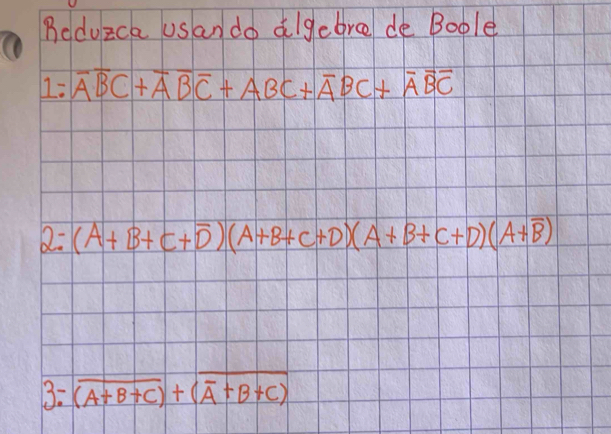 Reduzca usando álgebra de Boole
1= A̅B̅C + A̅ B̅ C̅ + ABC + A̅BC + A̅ B̅ C̅
2= (A+B+C+D̅)(A+B+C+D)(A+B+C+D)(A+B̅)
3= (\overline{A+B+C}) + (\overline{A̅+B+C})